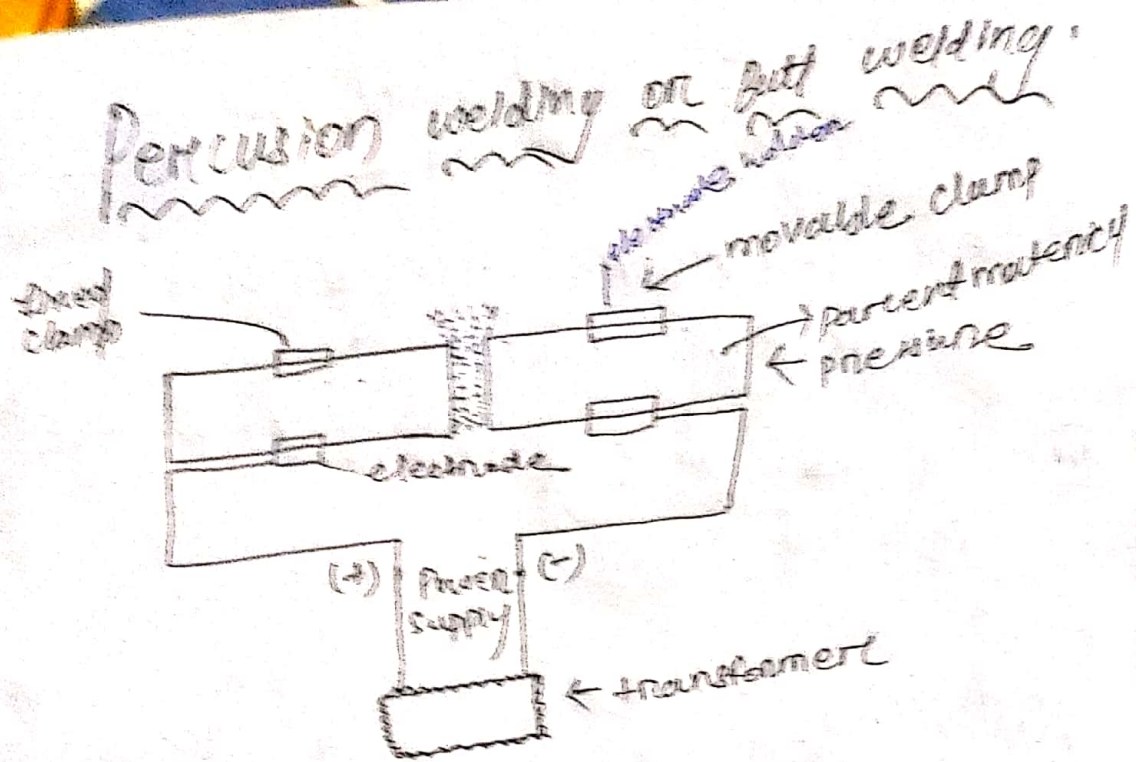 Percusion welding or Butt welding.
movable clamp
clamp
parcent
pressure
electrode
(+)
Power
supply
(-)
transformer